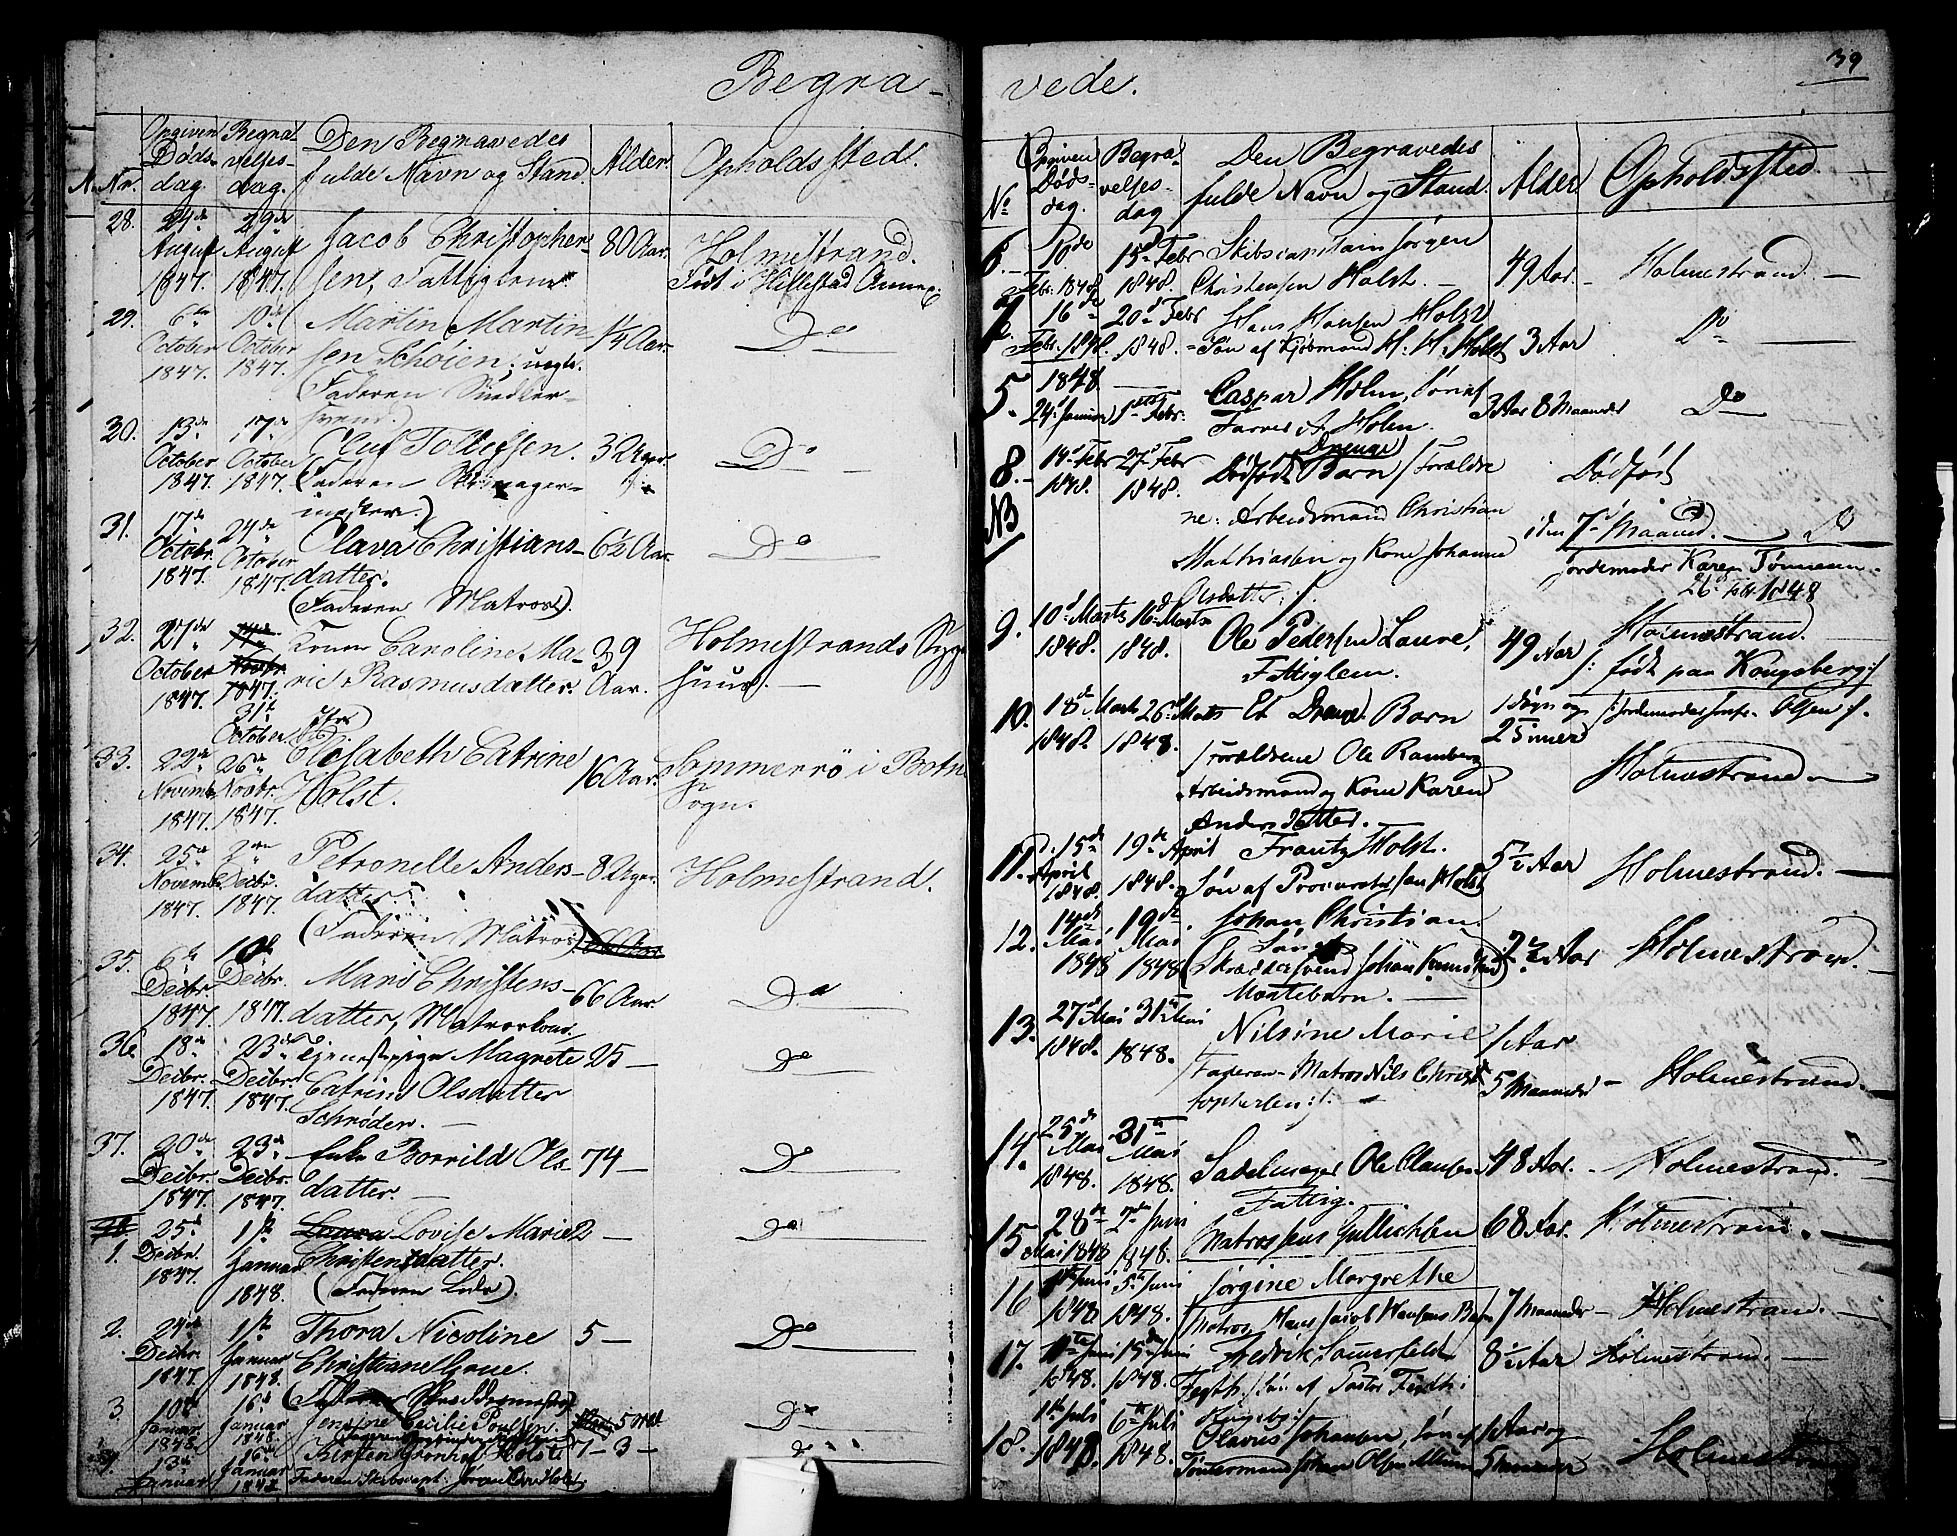 Begra-
Nr.
Opgiven Døds-dag.
Begravelses-dag.
Den Begravedes fulde Navn og Stand.
Alder.
Opholdssted.
28.
24de August 1847.
29de August 1847.
Jacob Christopher-
sen, Fattiglem
80 Aar.
Holmestrand.
Født i Hillestad Annex
29.
6te October 1847.
10de October 1847.
Martin Martin-
sen Schøien, uegte.
Faderen Snedker-
svend.
1/4 Aar.
Do
30.
13de October 1847.
17de October 1847.
Oluf Tollefsen.
(Faderen
mester.)
3 Uger
Do
31.
17de Octobr. 1847.
24de October 1847.
Olava Christians-
datter.
(Faderen Matros).
6½ Aar.
Do
32.
21de October 1847.
31te October
Konen Caroline Ma-
rie Rasmusdatter.
39 Aar.
Holmestrands Syge
huus.
33.
22de Novembr 1847.
26de Novbr. 1847.
Elisabeth Catrine
Holst.
16 Aar.
Sommerrö i Botne
Sogn.
34.
25de Novembr 1847.
2den Decbr. 1847.
Petronelle Anders-
datter.
(Faderen Matros)
8 Uger.
Holmestrand.
35.
6te Decbr. 1847.
10de Decbr. 1847.
Maris Christens-
datter, Matroskone
66 Aar.
Do
36
18de Decbr. 1847.
23de Decbr. 1847.
Tjenestepige Magrete
Catrine Olsdatter
Schrøder.
25
Do
37.
20de Decbr. 1847.
23de Decbr. 1847.
Enke Borrild Ols-
datter.
74
Do
1.
25de Decbr. 1847.
1ste Januar 1848.
Laura Lovise Marie
Christensdatter.
(Faderen Lods).
2
Do
2.
24de Decbr. 1847.
1ste Januar 1848.
Thora Nicoline
Christiane Gaue.
5
Do
3.
10de Januar 1848.
16de Januar 1848.
Jensine Cecilie Poulsen.
5
Do
4.
13de Januar
16de Januar 1848
Kirsten Holst
Faderen Skibscapt: Jørgen Chr Holst
7 - 3
Do
39
vede.
No
Opgiven Døds-dag.
Begravelses-dag
Den Begravedes fulde Navn og Stand.
Alder
Opholdssted.
6.
10de Febr: 1848
15de Febr 1848.
Skibscaptain Jørgen
Christensen Holst.
49 Aar.
Holmestrand.
7.
16de Febr. 1848.
20de Febr 1848.
Hans Hansen Holst
Søn af Kjøbmand H. H. Holst
3 Aar
Do
5.
1848.
24de Januar
1ste Febr.
Caspar Holm, Søn af
Farver A. Holm.
3 Aar 8 Maaneder
Do
8.
NB
14de Febr 1848.
27de Febr 1848.
Drenge
Dødfødt Barn /Forældre
ne: Arbeidsmand Christian
Mathiasen og Kone Johanne
Olsdatter :/.
Dødfødt
i den 7de Maaned. Do
Jordemoder Karen Tønnesen.
26 Febr 1848
9.
10de Marts 1848.
16de Marts 1848.
Ole Pedersen Laure,
Fattiglem.
49 Aar
Holmestrand.
/: født paa Kongsberg :/
10.
18de Marts 1848.
26de Marts 1848.
Et Drenge Barn
/Forældrene Ole Ramberg
Arbeidsmand og Kone Karen
Anders Datter.
1 Døgn og
2 Timer
/: Jordemoder Olsen :/.
Holmestrand
11.
15de April 1848.
19de April 1848.
Frantz Holst.
Søn af Procurator Holst
5½ Aar
Holmestrand.
12.
14de Mai 1848
19de Mai 1848
Johan Christian
Søn af
(Skræddersvend Johan
2½ Aar
Holmestrand.
13.
27de Mai 1848.
31te Mai 1848.
Nilsine Marie
/Faderen Matros Nils Christ
tophersen :/.
1 Aar
5 Maaneder
Holmestrand.
14.
25de Mai 1848.
31te Mai 1848.
Sadelmager Ole Clausen
Fattig.
48 Aar.
Holmestrand.
15
28de Mai 1848
2den Juni 1848.
Matros Jens Gullichsen
68 Aar.
Holmestrand.
16
Juni 1848
5te Juni 1848.
Jørgine Margrethe
/Matros Hans Jacob Hansens Barn
7 Maaneder
Holmestrand.
17.
11te Juni 1848.
15de Juni 1848.
Fredrik Sommerfeldt
Søn af Pastor
8½ Aar
Holmestrand.
18.
1ste Juli 1848.
6te Juli 1848.
Olavus Johansen, Søn af
Tømmermand Johan Olsen
1 Aar og
5 Maaneder
Holmestrand